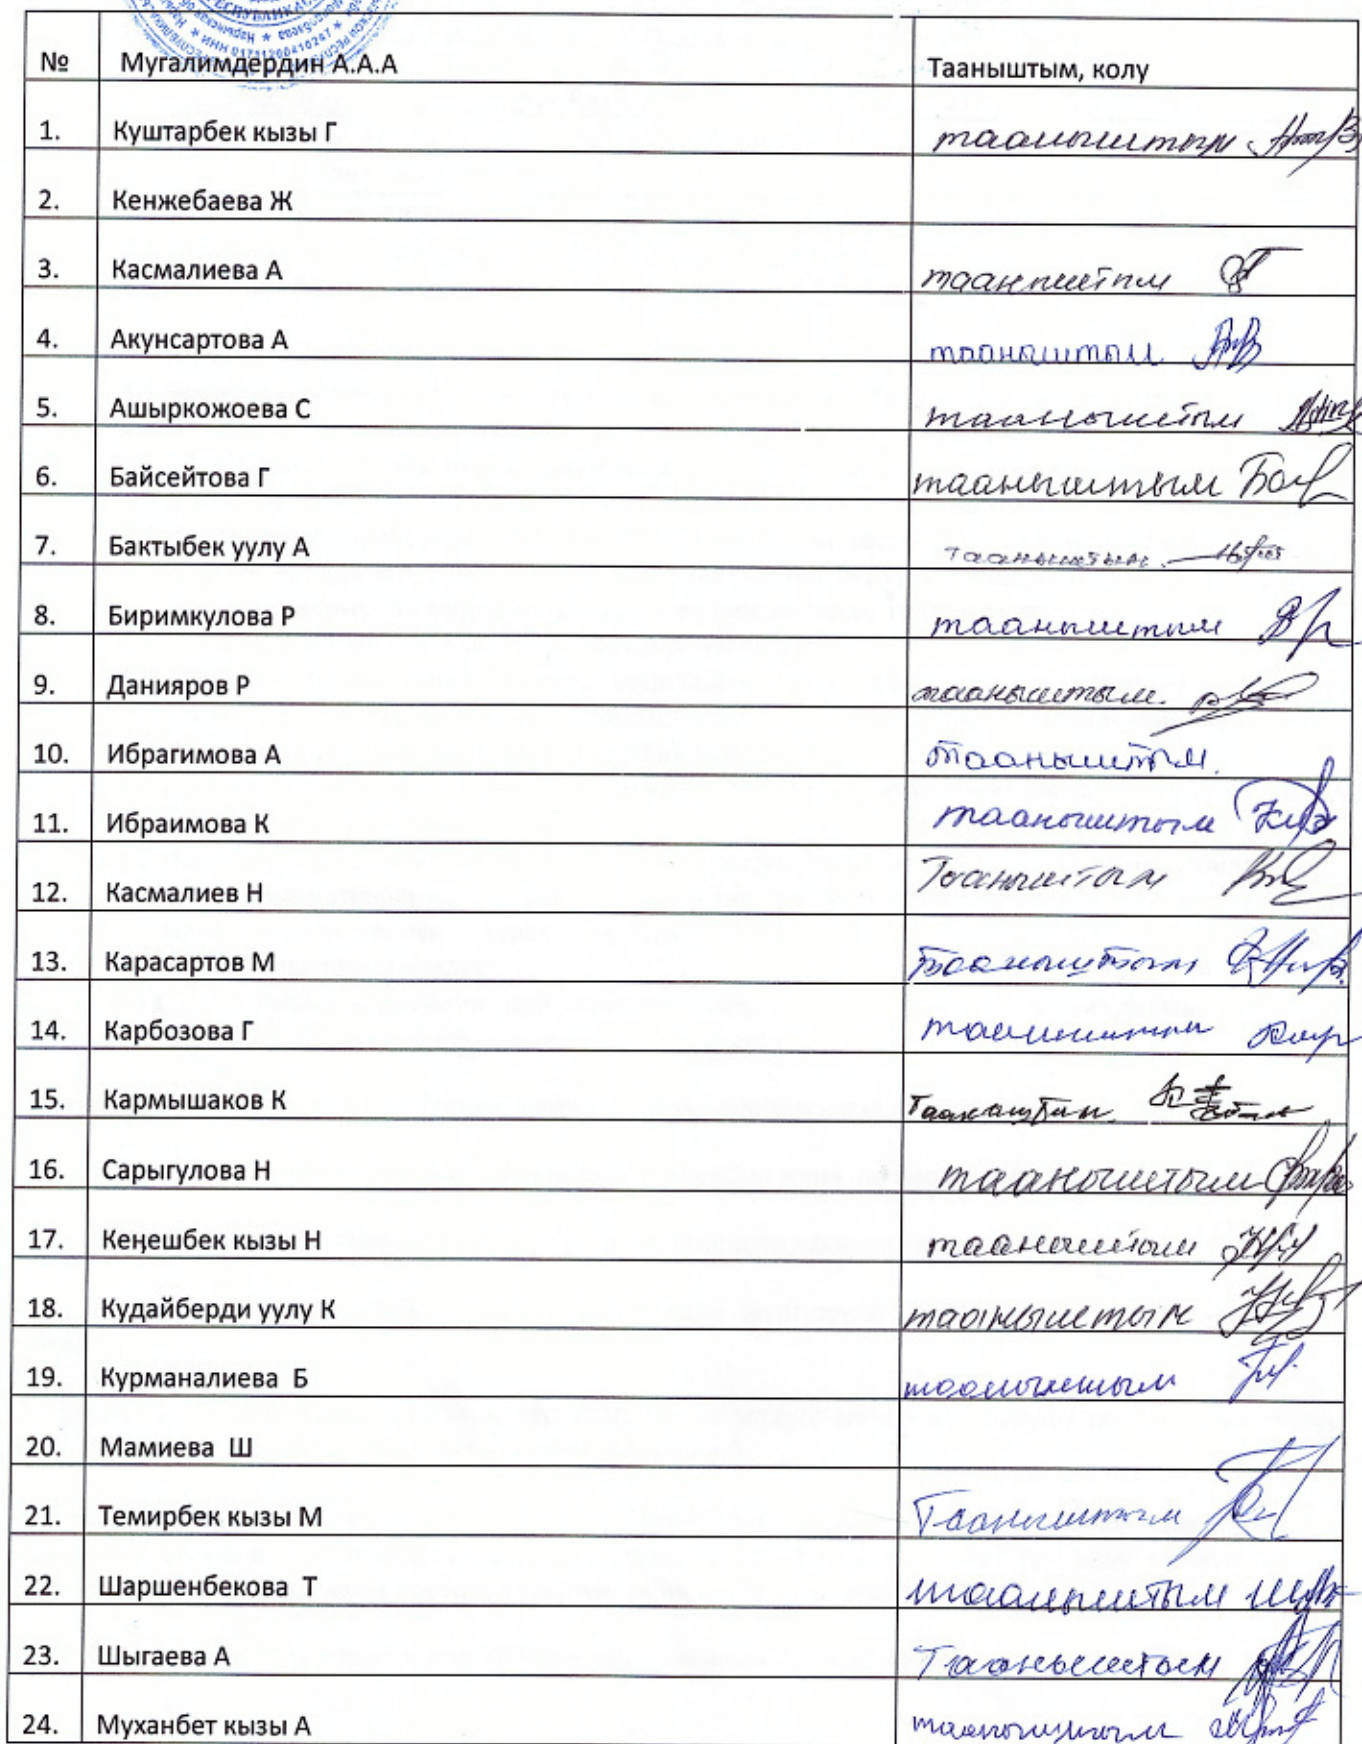 РЕСПУБЛИКАС
№ Мугалимдердин А.А.А Тааныштым, колу
1. Куштарбек кызы Г тааныштым
2. Кенжебаева Ж
3. Касмалиева А тааныштым
4. Акунсартова А тааныштым
5. Ашыркожоева С тааныштым
6. Байсейтова Г тааныштым
7. Бактыбек уулу А тааныштым
8. Биримкулова Р тааныштым
9. Данияров Р тааныштым.
10. Ибрагимова А тааныштым.
11. Ибраимова К тааныштым
12. Касмалиев Н Тааныштым
13. Карасартов М Тааныштым
14. Карбозова Г тааныштым
15. Кармышаков К Тааныштым
16. Сарыгулова Н тааныштым
17. Кеңешбек кызы Н тааныштым
18. Кудайберди уулу К тааныштым
19. Курманалиева Б тааныштым
20. Мамиева Ш
21. Темирбек кызы М Тааныштым
22. Шаршенбекова Т тааныштым
23. Шыгаева А Тааныштым
24. Муханбет кызы А тааныштым